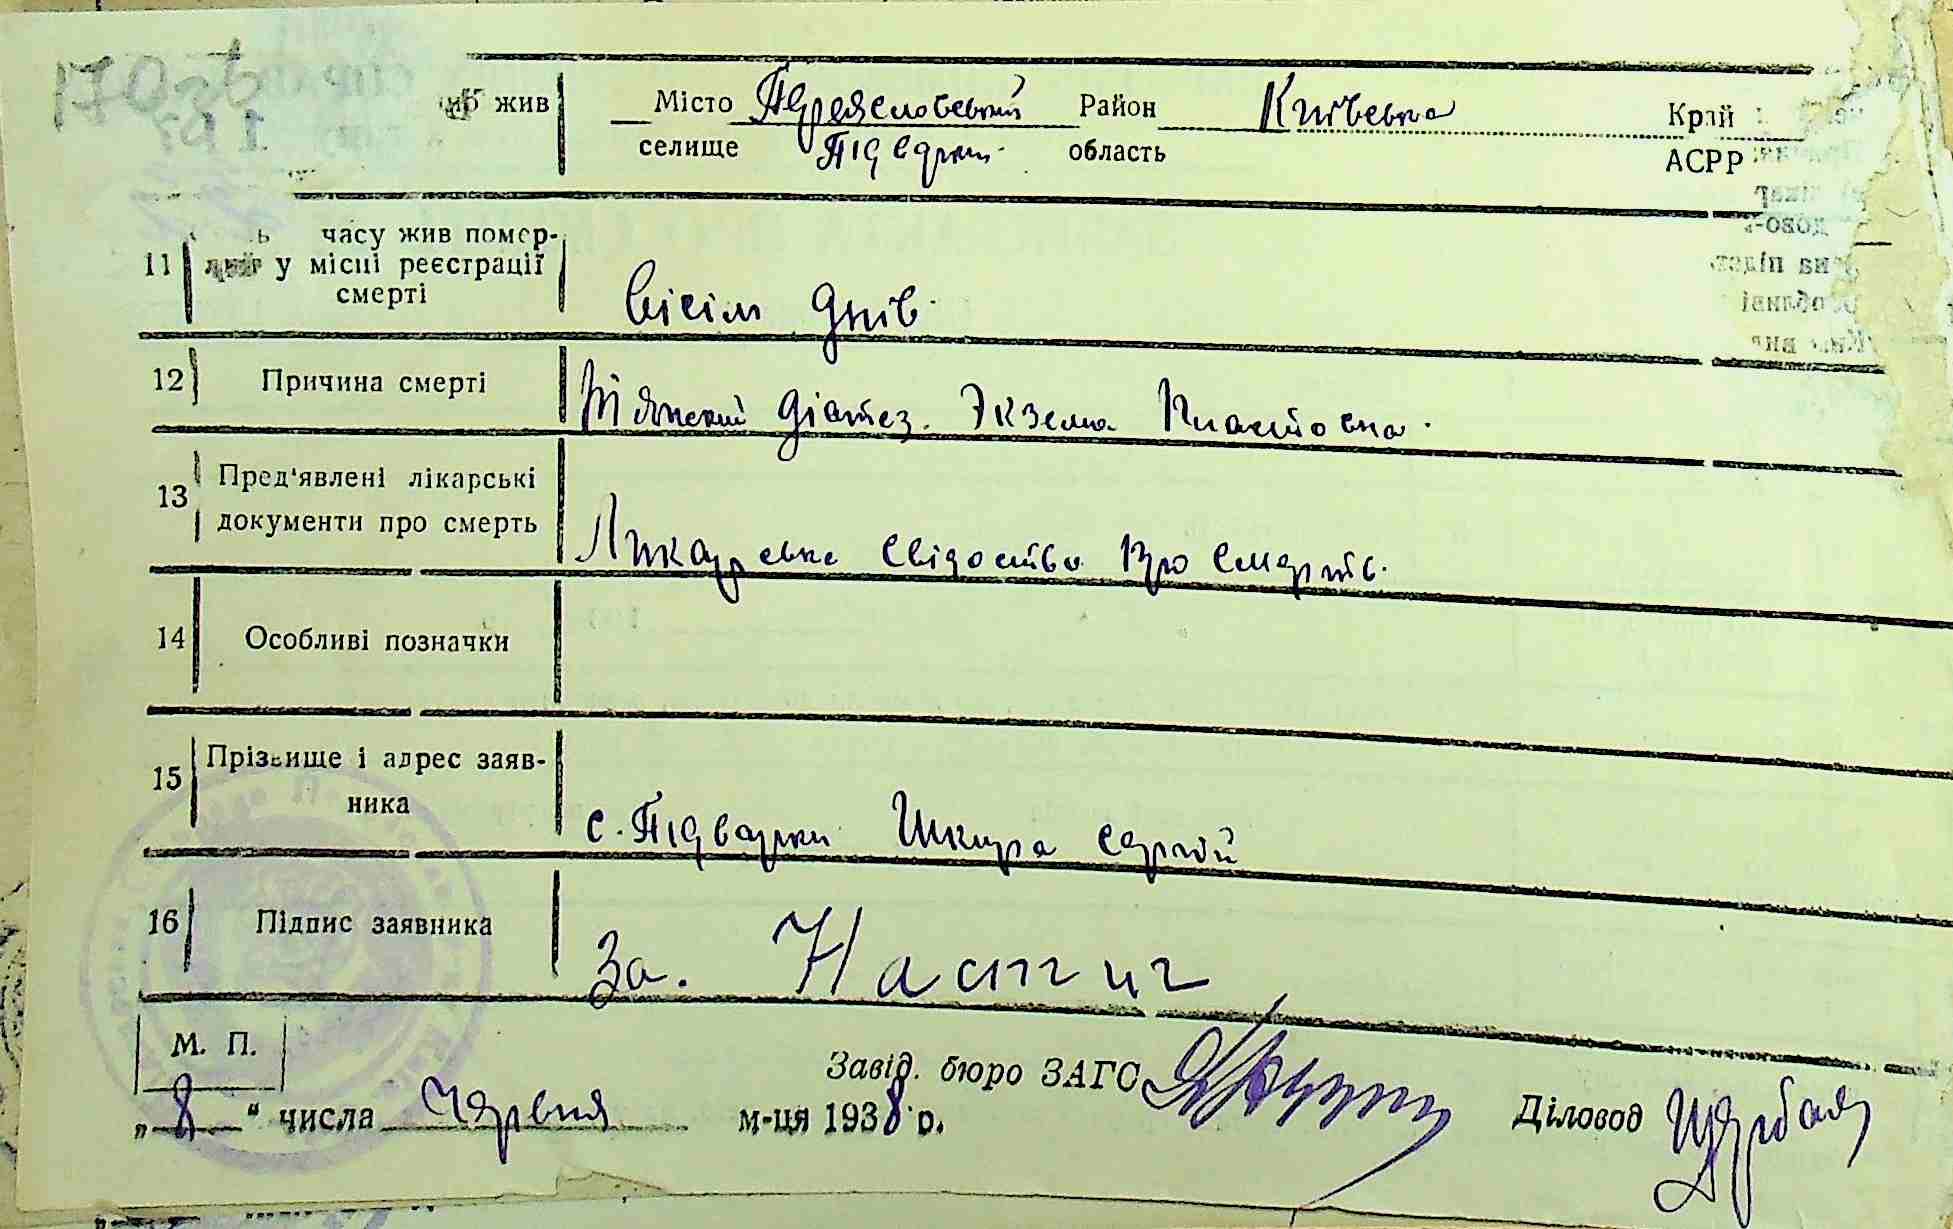 жив Місто Переяславський Район Київська Край
селище Підварки область АСРР
11 часу жив помер-
у місці реєстрації
смерті
вісім днів.
12 Причина смерті
діатез. Экзема
13 Пред'явлені лікарські
документи про смерть
Ликарське свідоство про смерть.
14 Особливі позначки
15 Прізвище і адрес заяв-
ника
с. Підварки Шкира Сергій
16 Підпис заявника
За.
М. П.
Завід. бюро ЗАГС
„8“ числа червня м-ця 1938 р.
Діловод